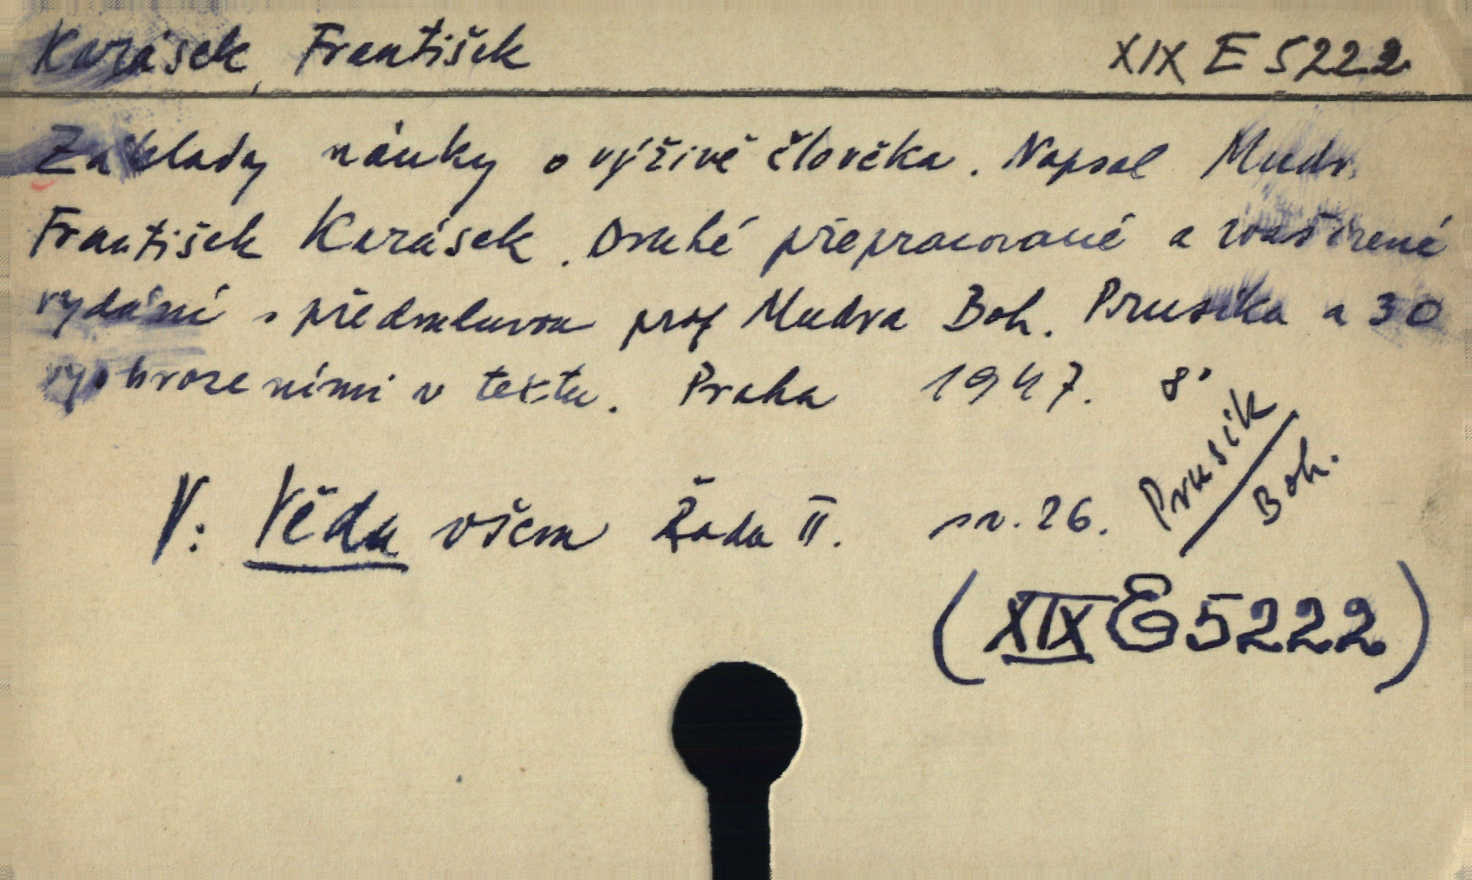 Karásek, František XIX E 5222
Základy náuky o výživě člověka. Napsal Mudr.
František Karásek. Druhé přepracované a rozšířené
vydání s předmluvou prof Mudra Boh. Prusíka a 30
vyobrazeními v textu. Praha 1947. 8°
Prusík
Boh.
V: Věda všem Řada II. sv. 26.
(XIX E 5222)